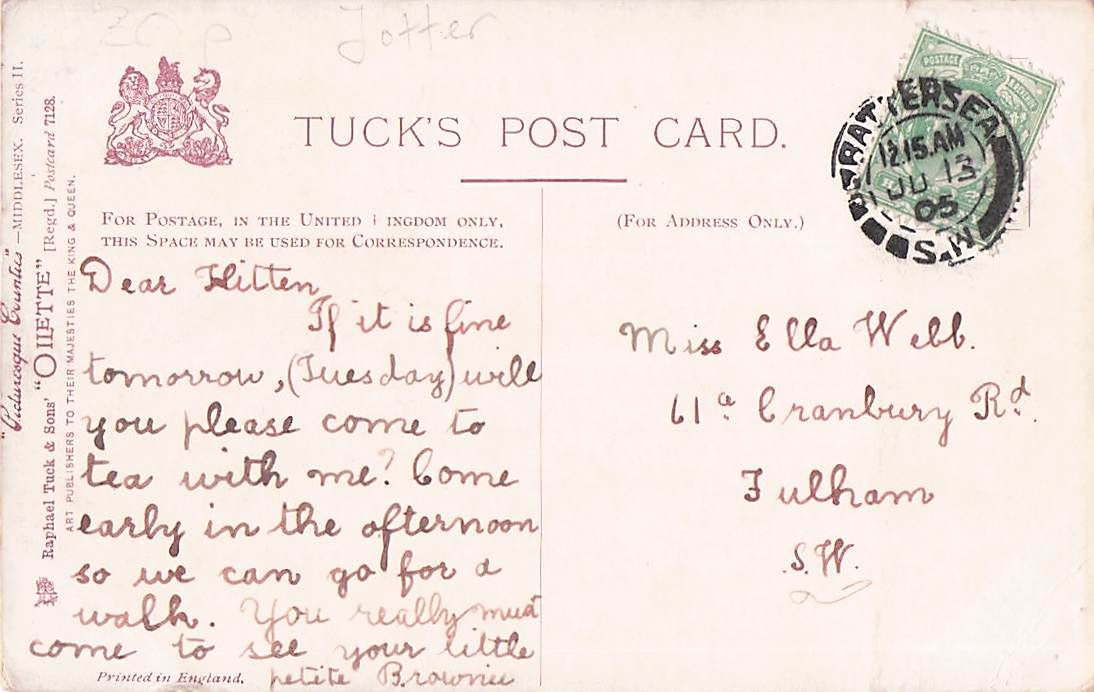 Jotter
TUCK'S POST CARD.
FOR POSTAGE, IN THE UNITED KINGDOM ONLY,
THIS SPACE MAY BE USED FOR CORRESPONDENCE.
(FOR ADDRESS ONLY.)
POSTAGE
BATTERSEA
12.15.AM
JU 13
05
S.W
"Picturesque Counties"—MIDDLESEX. Series II.
Raphael Tuck & Sons' "OILETTE" [Regd.] Postcard 7128.
ART PUBLISHERS TO THEIR MAJESTIES THE KING & QUEEN.
Dear Hitten
If it is fine
tomorrow, (Tuesday) will
you please come to
tea with me? Come
early in the afternoon
so we can go for a
walk. You really must
come to see your little
petite Brownie
Printed in England.
Miss Ella Webb.
61a Cranbury Rd.
Fulham
S.W.